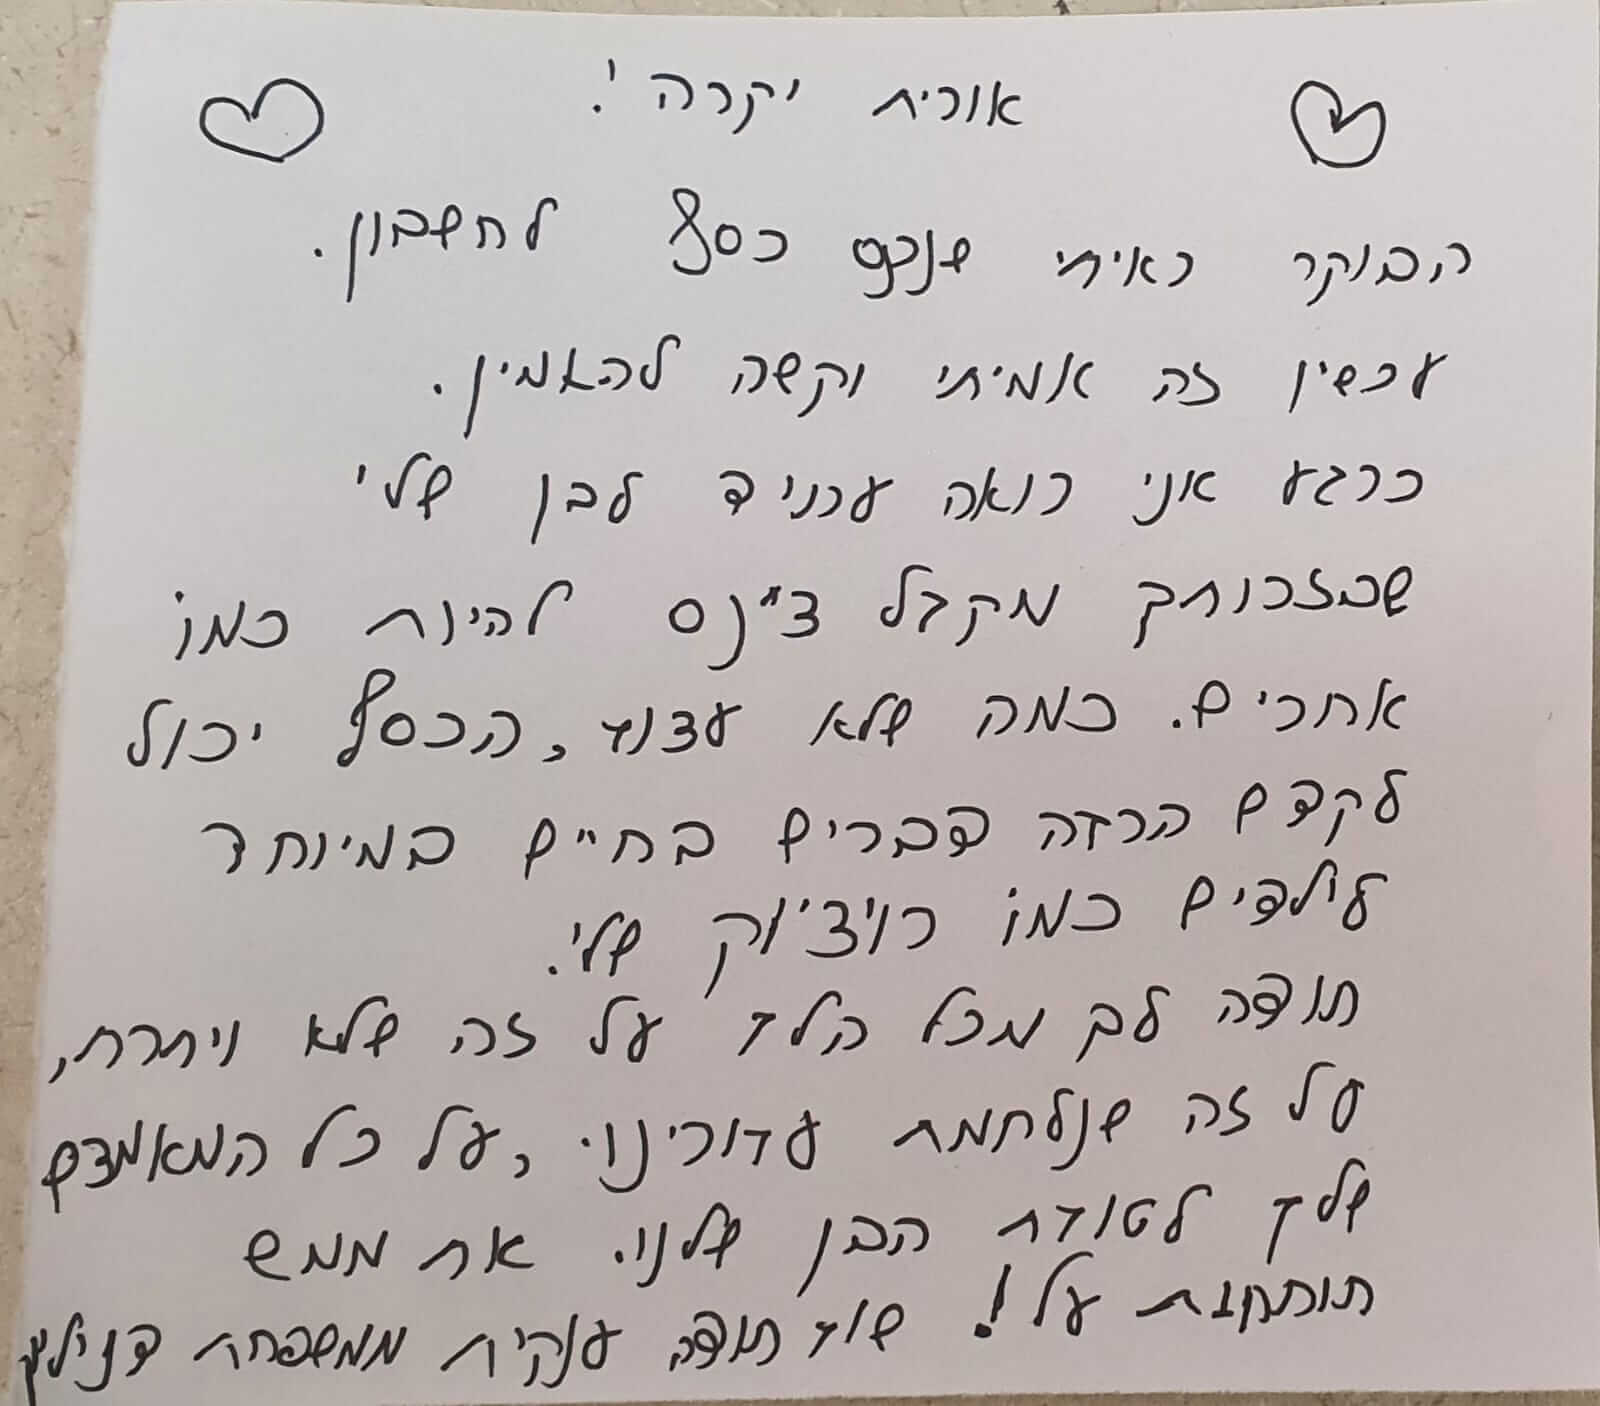 אורית יקרה!
הבוקר ראיתי שנכנס כסף לחשבון.
עכשיו זה אמיתי וקשה להאמין.
כרגע אני רואה עתיד לבן שלי
שבזכותך מקבל צ'נס להיות כמו
אחרים. כמה שלא עצוב, הכסף יכול
לקדם הרבה דברים בחיים במיוחד
לילדים כמו רויצ'יוק שלי.
תודה לך מכל הלב על זה שלא ויתרת,
על זה שנלחמת עבורינו, על כל המאמצים
שלך לטובת הבן שלנו. את ממש
תותחית על! שוב תודה ענקית ממשפחת